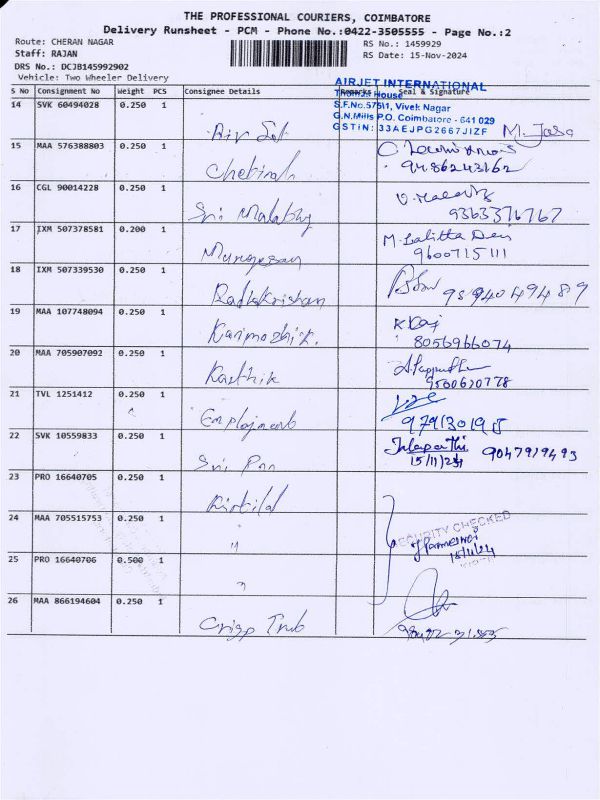 THE PROFESSIONAL COURIERS, COIMBATORE
Delivery Runsheet - PCM - Phone No.:0422-3505555 - Page No.:2
Route: CHERAN NAGAR RS No.: 1459929
Staff: RAJAN RS Date: 15-Nov-2024
DRS No.: DCJB145992902
Vehicle: Two Wheeler Delivery
AIRJET INTERNATIONAL
S No Consignment No Weight PCS Consignee Details Remarks Seal & Signature
House
S.F.No.575/1, Vivek Nagar
G.N.Mills P.O. Coimbatore - 641 029
GSTIN: 33AEJPG2667J1ZF
14 SVK 60494028 0.250 1
15 MAA 576388803 0.250 1
9486243162
16 CGL 90014228 0.250 1 Sri
9363376767
17 IXM 507378581 0.200 1 Murugesan M. Lalitta Devi
9600715111
18 IXM 507339530 0.250 1 Radhakrishan
19 MAA 107748094 0.250 1 Kanimozhi K.
8056966074
20 MAA 705907092 0.250 1 Karthik
9500620778
21 TVL 1251412 0.250 1 Employment
22 SVK 10559833 0.250 1 Sri 9047919493
15/11/24
23 PRO 16640705 0.250 1
24 MAA 705515753 0.250 1 "
SECURITY CHECKED
25 PRO 16640706 0.500 1 "
26 MAA 866194604 0.250 1